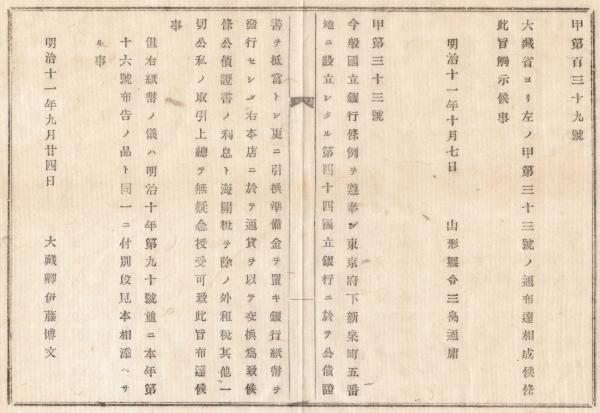 甲第百三十九號
大藏省ヨリ左ノ甲第三十三號ノ通布達相成候條
此旨觸示候事
明治十一年十月七日　山形縣令三島通庸
甲第三十三號
今般國立銀行條例ヲ遵奉シ東京府下新泉町五番
地ニ設立シタル第四十四國立銀行ニ於テ公債證
書ヲ抵當トシ更ニ引換準備金ヲ置キ銀行紙幣ヲ
發行セシメ右本店ニ於テ通貨ヲ以テ交換爲致候
條公債證書ノ利息ト海關稅ヲ除ノ外租稅其他一
切公私ノ取引上總テ無疑念授受可致此旨布達候
事
但右紙幣ノ儀ハ明治十年第九十號並ニ本年第
十六號布告ノ品ト同一ニ付別段見本相添ヘサ
ル事
明治十一年九月廿四日　大藏卿伊藤博文